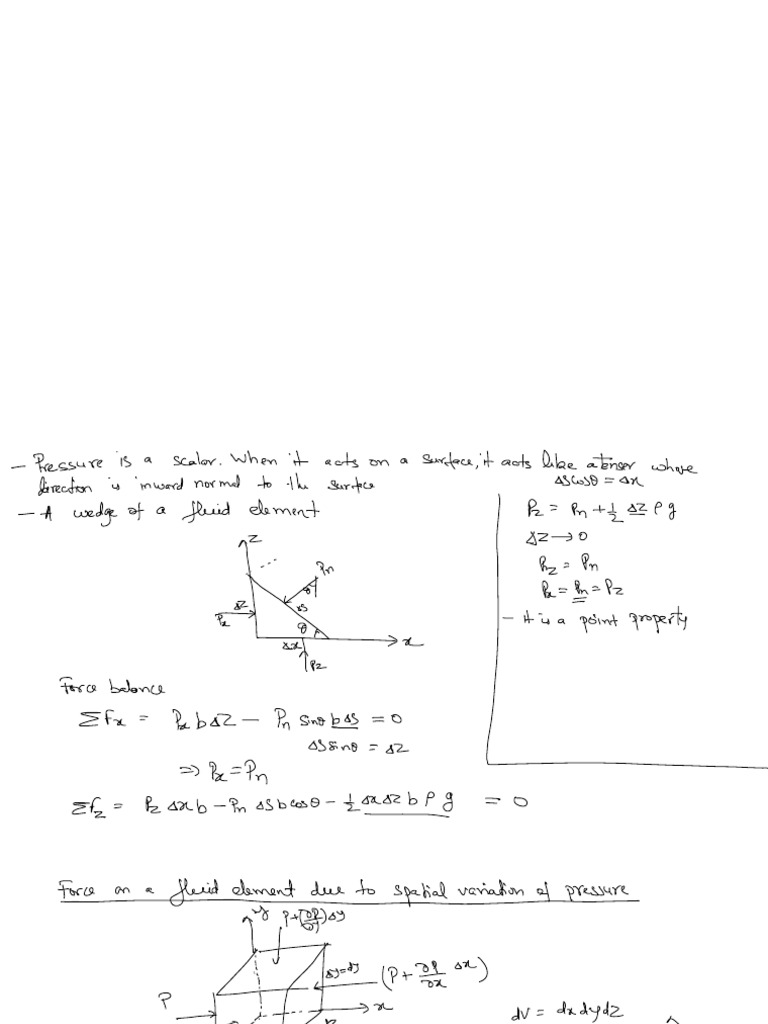 — Pressure is a scalar. When it acts on a surface, it acts like a tensor whose
direction is inward normal to the surface
— A wedge of a fluid element
Δs cosθ = Δx
P_z = P_n + 1/2 Δz ρ g
Δz → 0
P_z = P_n
P_x = P_n = P_z
— it is a point property
z
...
P_n
θ
Δs
Δz
P_x
θ
x
Δx
P_z
Force balance
Σf_x = P_x b Δz — P_n sinθ b Δs = 0
Δs sinθ = Δz
⇒ P_x = P_n
Σf_z = P_z Δx b — P_n Δs b cosθ — 1/2 Δx Δz b ρ g = 0
Force on a fluid element due to spatial variation of pressure
y
P + (∂P/∂y) Δy
Δy = dy
(P + ∂P/∂x Δx)
P
x
dV = dx dy dz